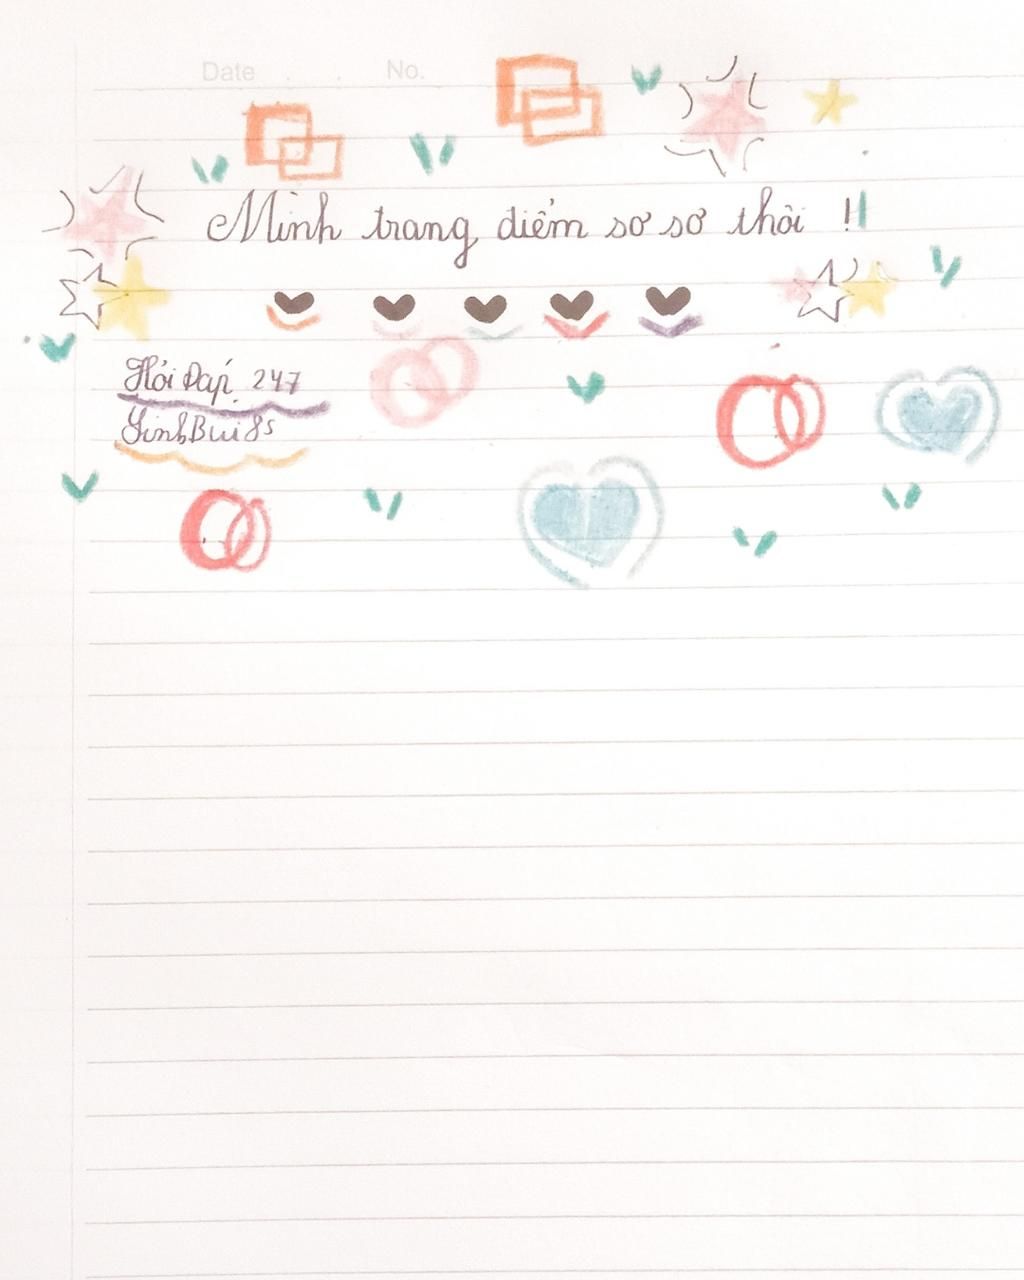 Date . . No.
Mình trang điểm sơ sơ thôi !!
Hỏi Đáp 247
LinhBui8s